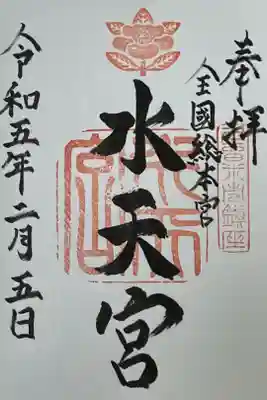 奉拝
全國総本宮
水天宮
令和五年二月五日